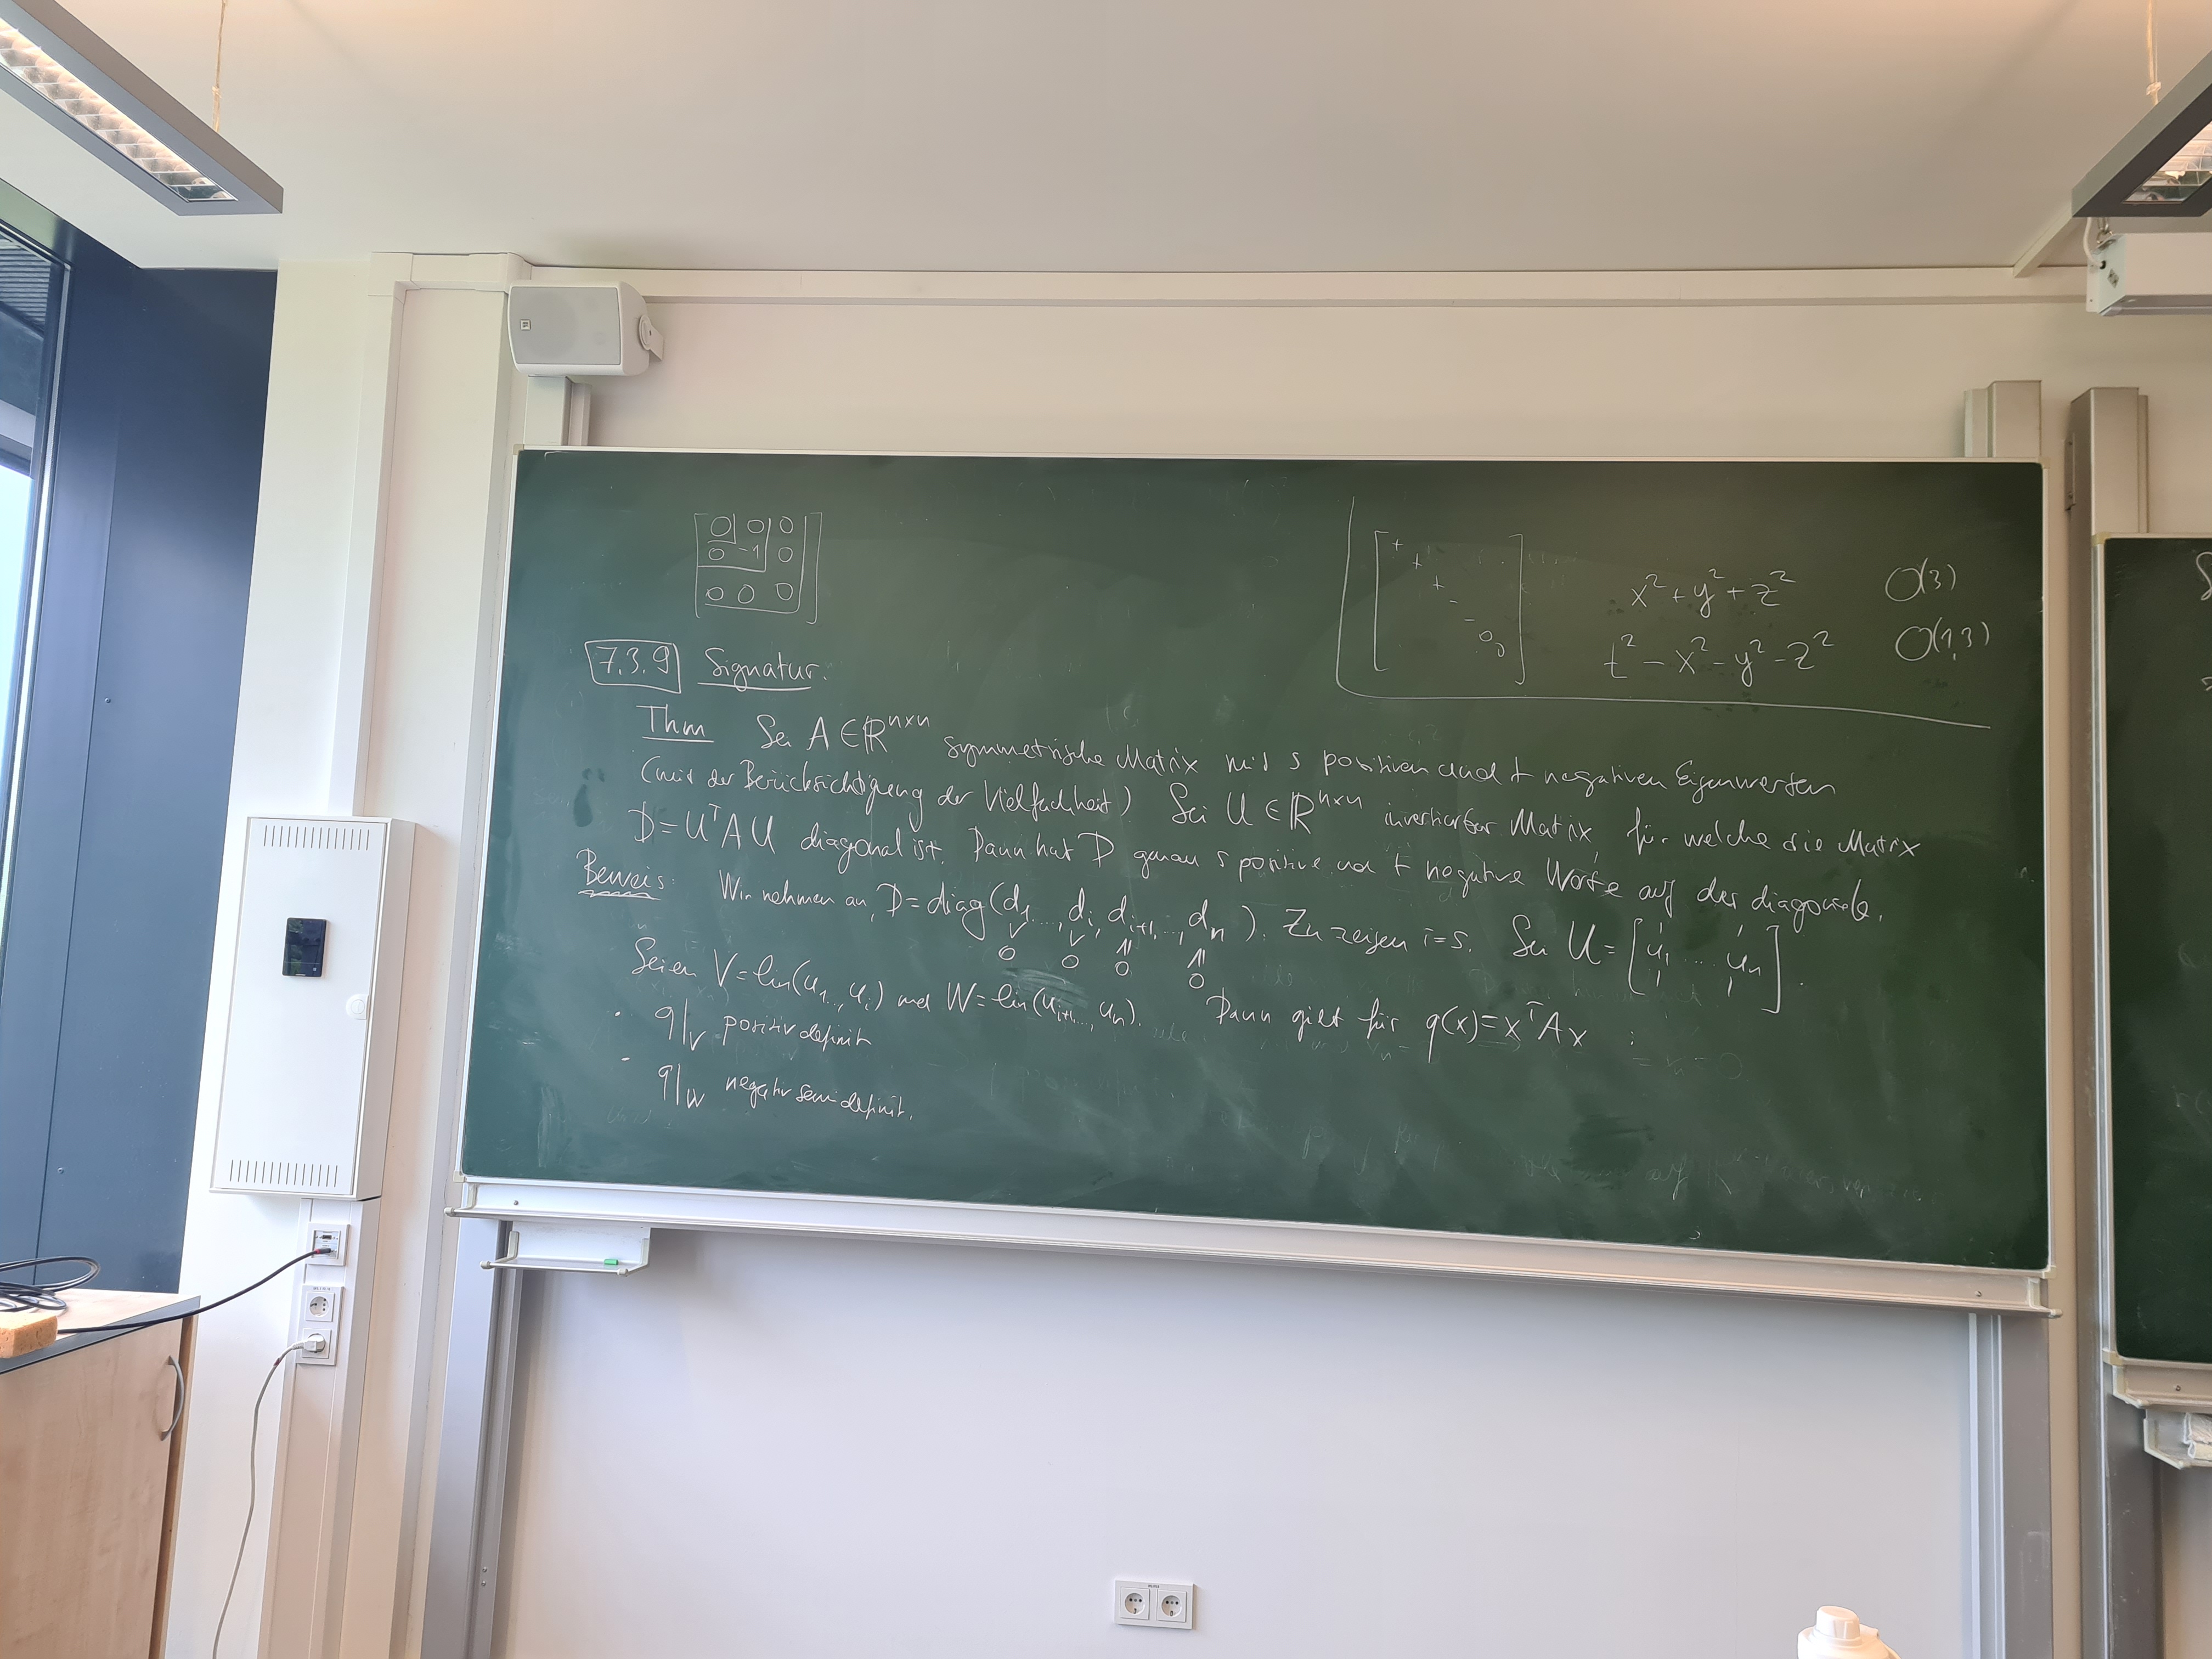 0 0 0
0 -1 0
0 0 0
+
+
+
-
-
0
0
x² + y² + z² O(3)
t² - x² - y² - z² O(1,3)
7.3.9 Signatur.
Thm Sei A ∈ ℝⁿˣⁿ symmetrische Matrix mit s positiven und t negativen Eigenwerten
(mit der Berücksichtigung der Vielfachheit) Sei U ∈ ℝⁿˣⁿ invertierbar Matrix, für welche die Matrix
D = UᵀAU diagonal ist. Dann hat D genau s positive und t negative Werte auf der diagonale.
Beweis: Wir nehmen an, D = diag(d₁, ..., dᵢ, dᵢ₊₁, ..., dₙ). Zu zeigen i = s. Sei U = [u₁ ... uₙ].
∨ ∨ ≤ ≤
0 0 0 0
Seien V = lin(u₁, ..., uᵢ) und W = lin(uᵢ₊₁, ..., uₙ). Dann gilt für q(x) = xᵀAx :
· q|V positiv definit
· q|W negativ semidefinit.